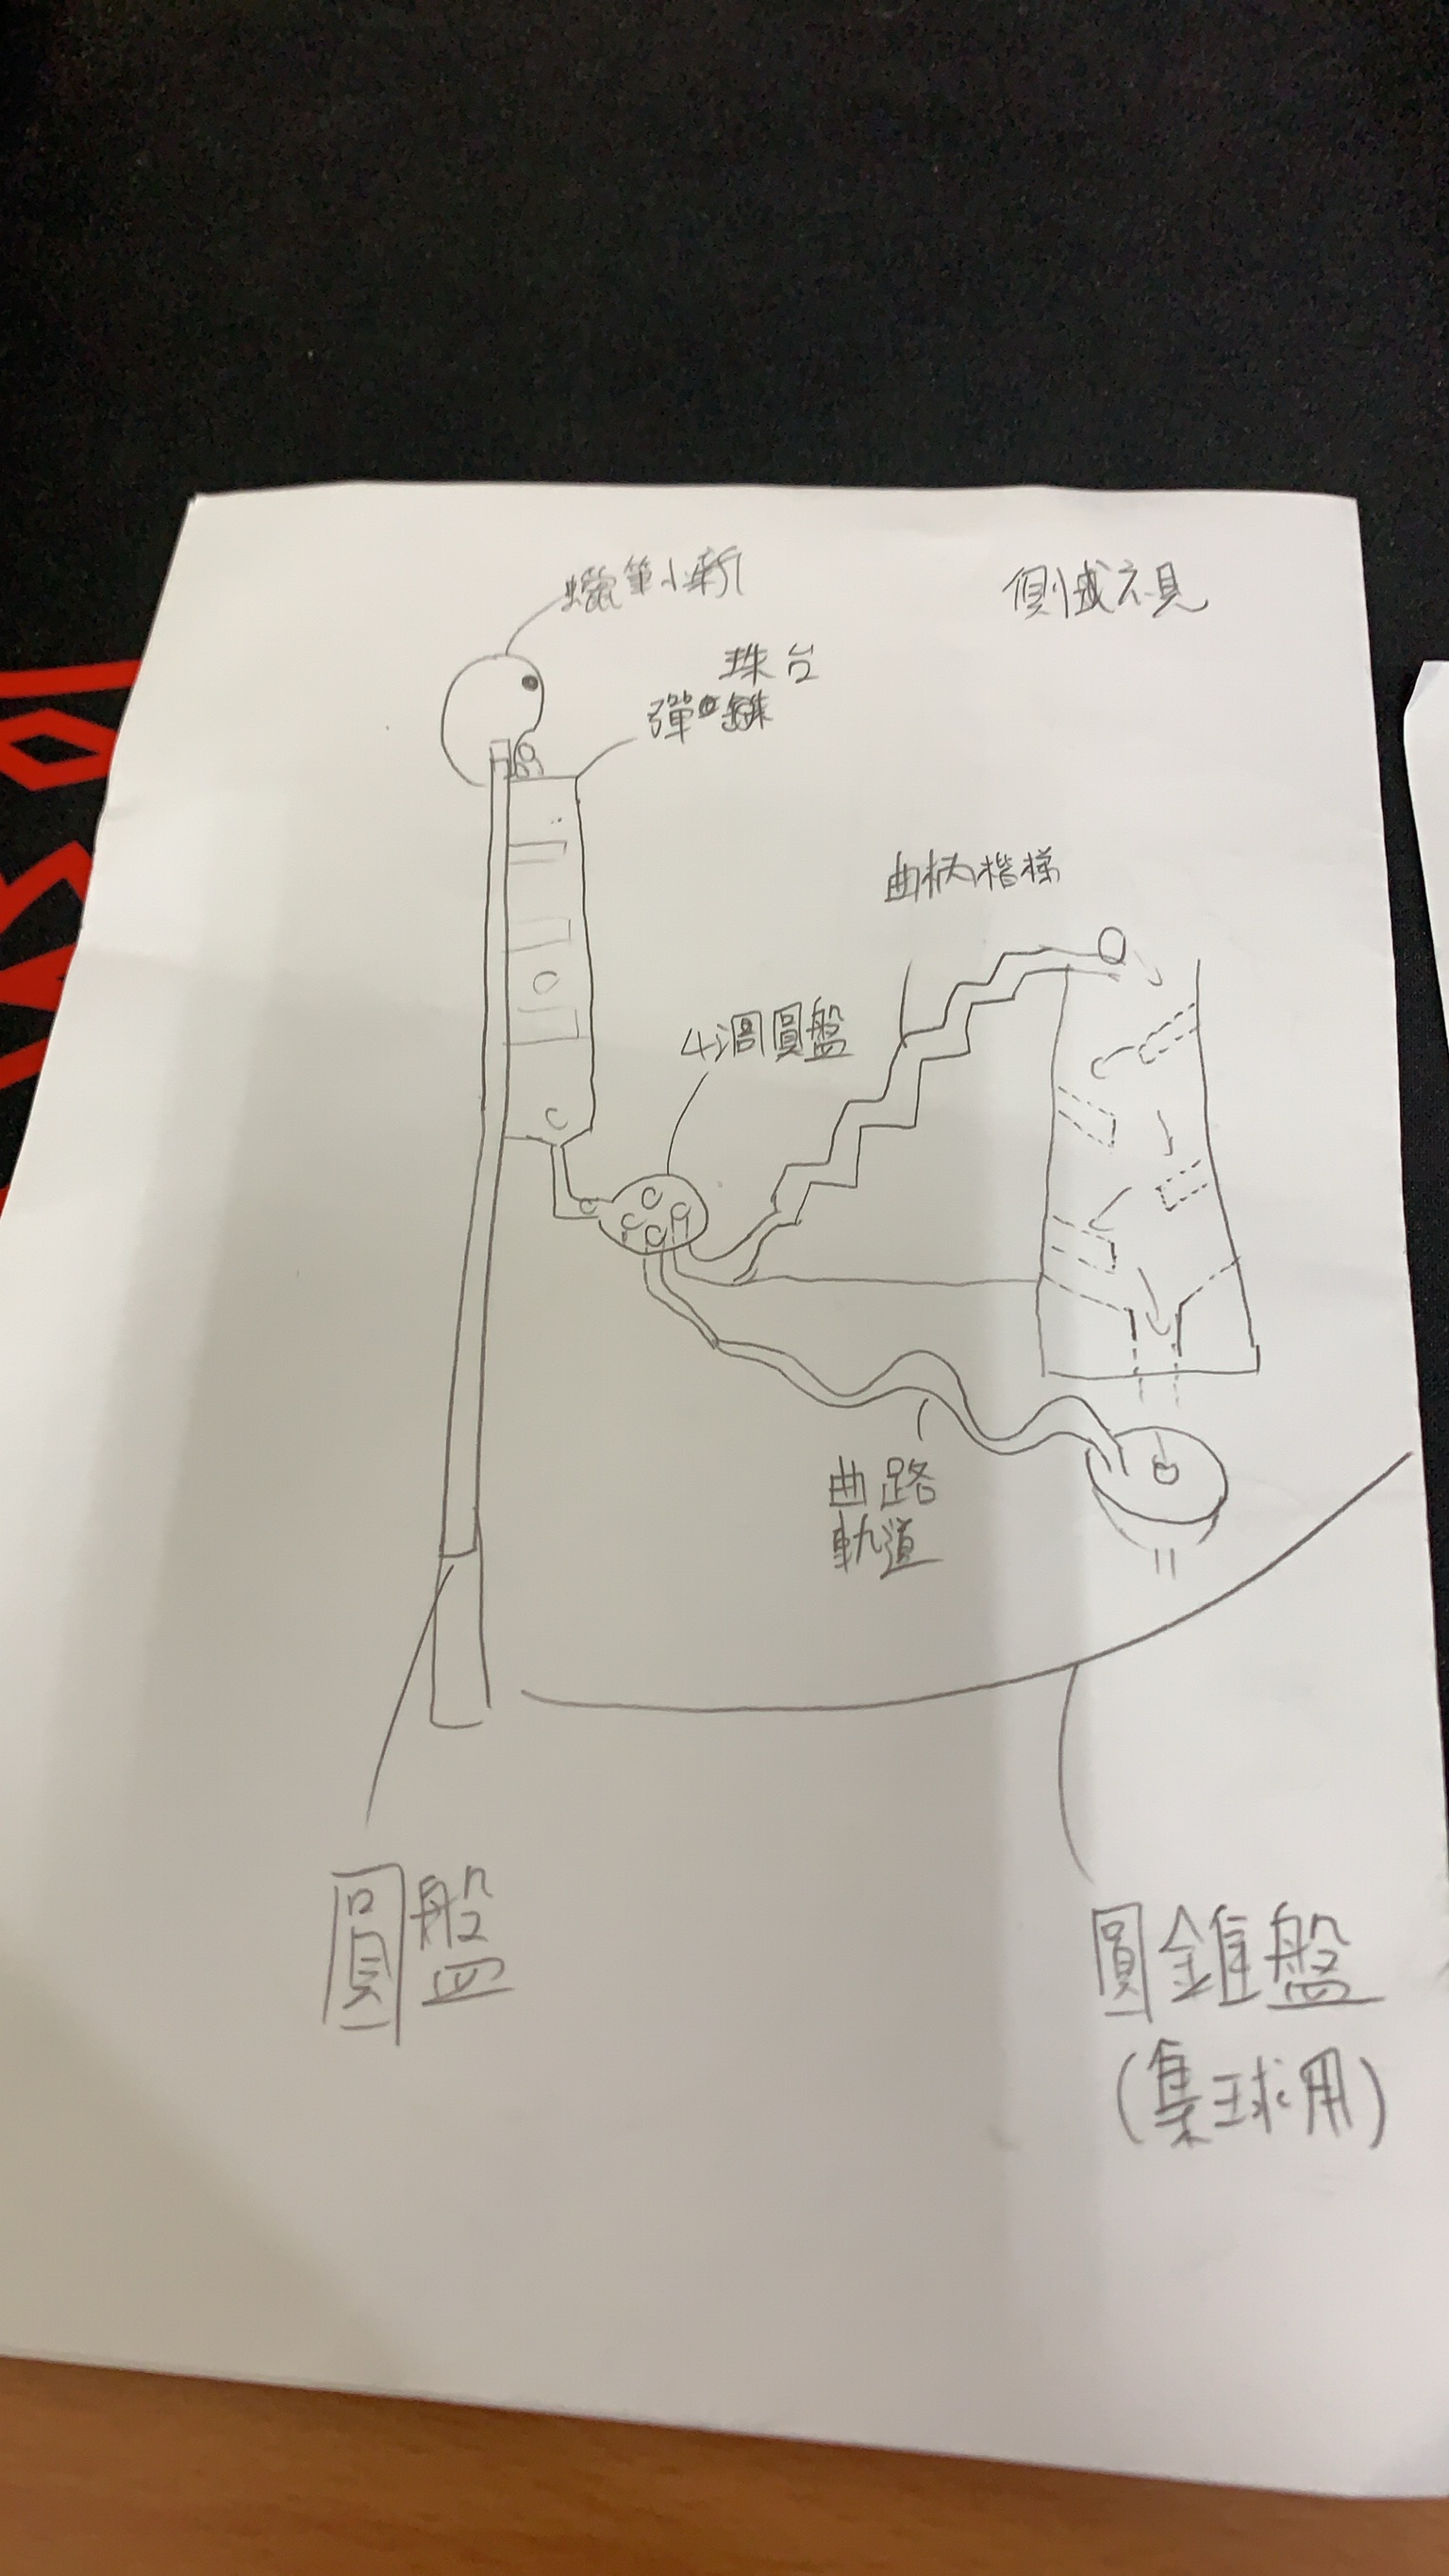 蠟筆小新
側或不見
珠台
彈
曲柄楷梯
4洞圓盤
曲路
軌道
圓盤
圓錐盤
(集球用)